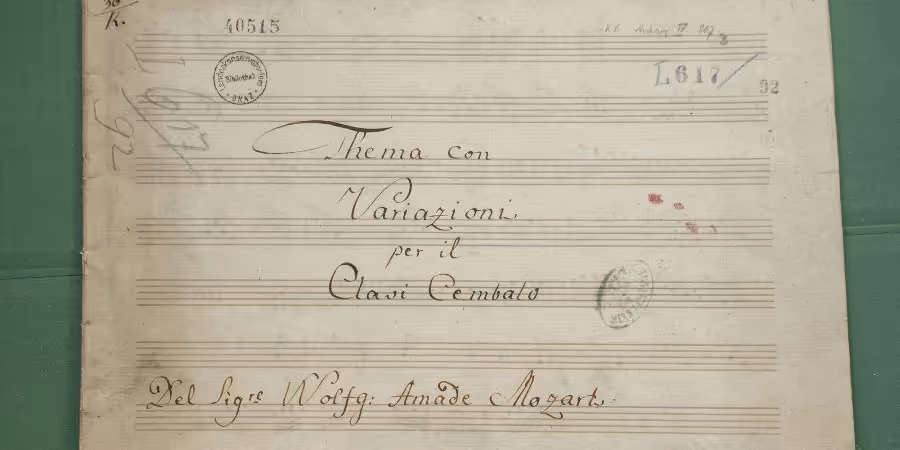 38
K.
40515
Landeskonservatorium
Bibliothek
GRAZ
L617
92
L 617
92
Thema con
Variazioni
per il
Clavi Cembalo
Del Sigre Wolfg: Amade Mozart.